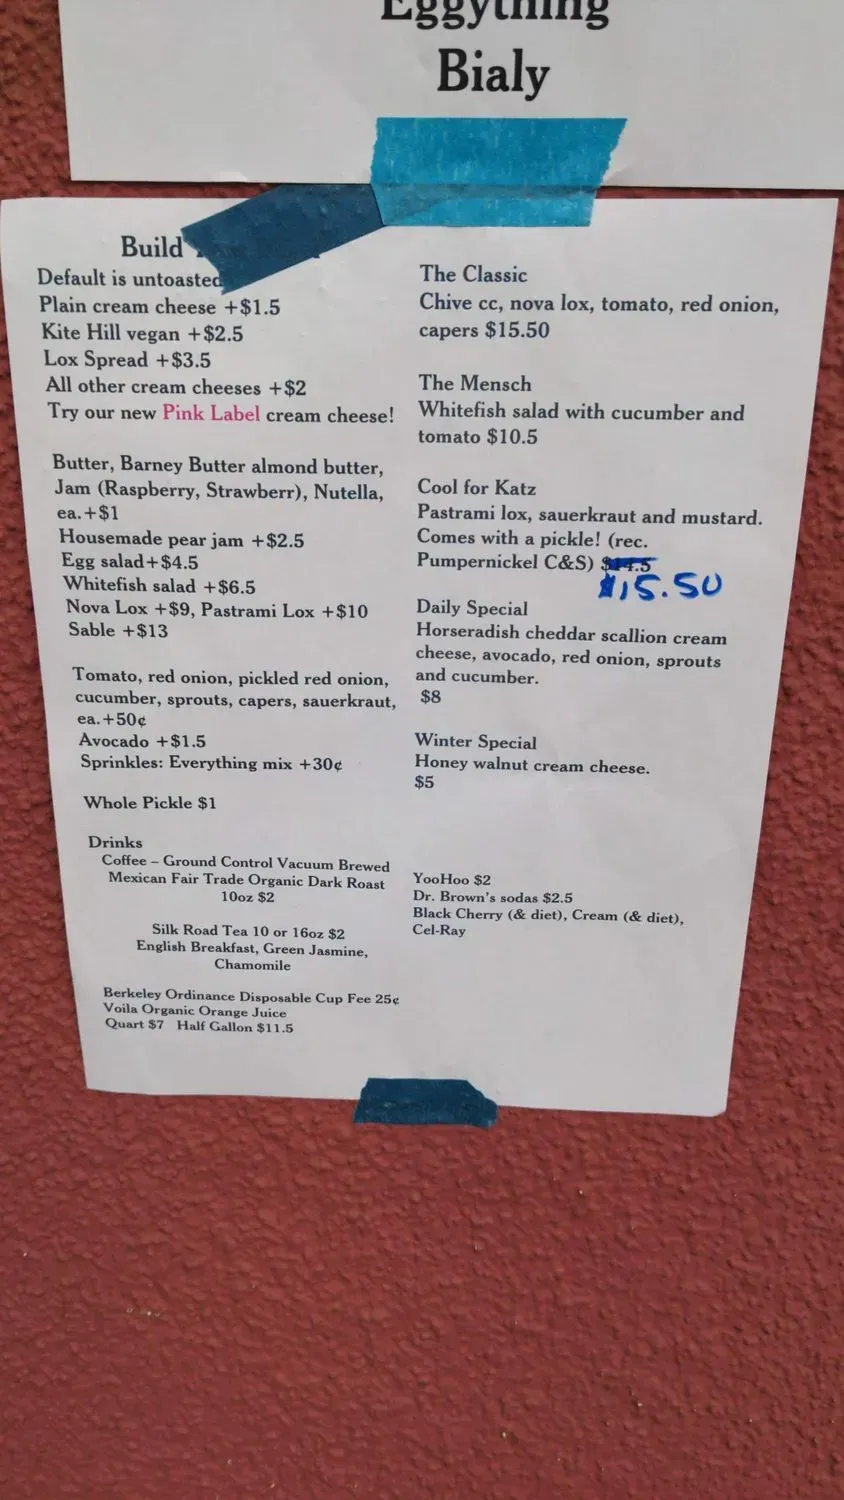 Eggything
Bialy
Build
Default is untoasted
Plain cream cheese +$1.5
Kite Hill vegan +$2.5
Lox Spread +$3.5
All other cream cheeses +$2
Try our new Pink Label cream cheese!
Butter, Barney Butter almond butter,
Jam (Raspberry, Strawberr), Nutella,
ea.+$1
Housemade pear jam +$2.5
Egg salad+$4.5
Whitefish salad +$6.5
Nova Lox +$9, Pastrami Lox +$10
Sable +$13
Tomato, red onion, pickled red onion,
cucumber, sprouts, capers, sauerkraut,
ea.+50¢
Avocado +$1.5
Sprinkles: Everything mix +30¢
Whole Pickle $1
Drinks
Coffee – Ground Control Vacuum Brewed
Mexican Fair Trade Organic Dark Roast
10oz $2
Silk Road Tea 10 or 16oz $2
English Breakfast, Green Jasmine,
Chamomile
Berkeley Ordinance Disposable Cup Fee 25¢
Voila Organic Orange Juice
Quart $7 Half Gallon $11.5
The Classic
Chive cc, nova lox, tomato, red onion,
capers $15.50
The Mensch
Whitefish salad with cucumber and
tomato $10.5
Cool for Katz
Pastrami lox, sauerkraut and mustard.
Comes with a pickle! (rec.
Pumpernickel C&S) $14.5
$15.50
Daily Special
Horseradish cheddar scallion cream
cheese, avocado, red onion, sprouts
and cucumber.
$8
Winter Special
Honey walnut cream cheese.
$5
YooHoo $2
Dr. Brown's sodas $2.5
Black Cherry (& diet), Cream (& diet),
Cel-Ray